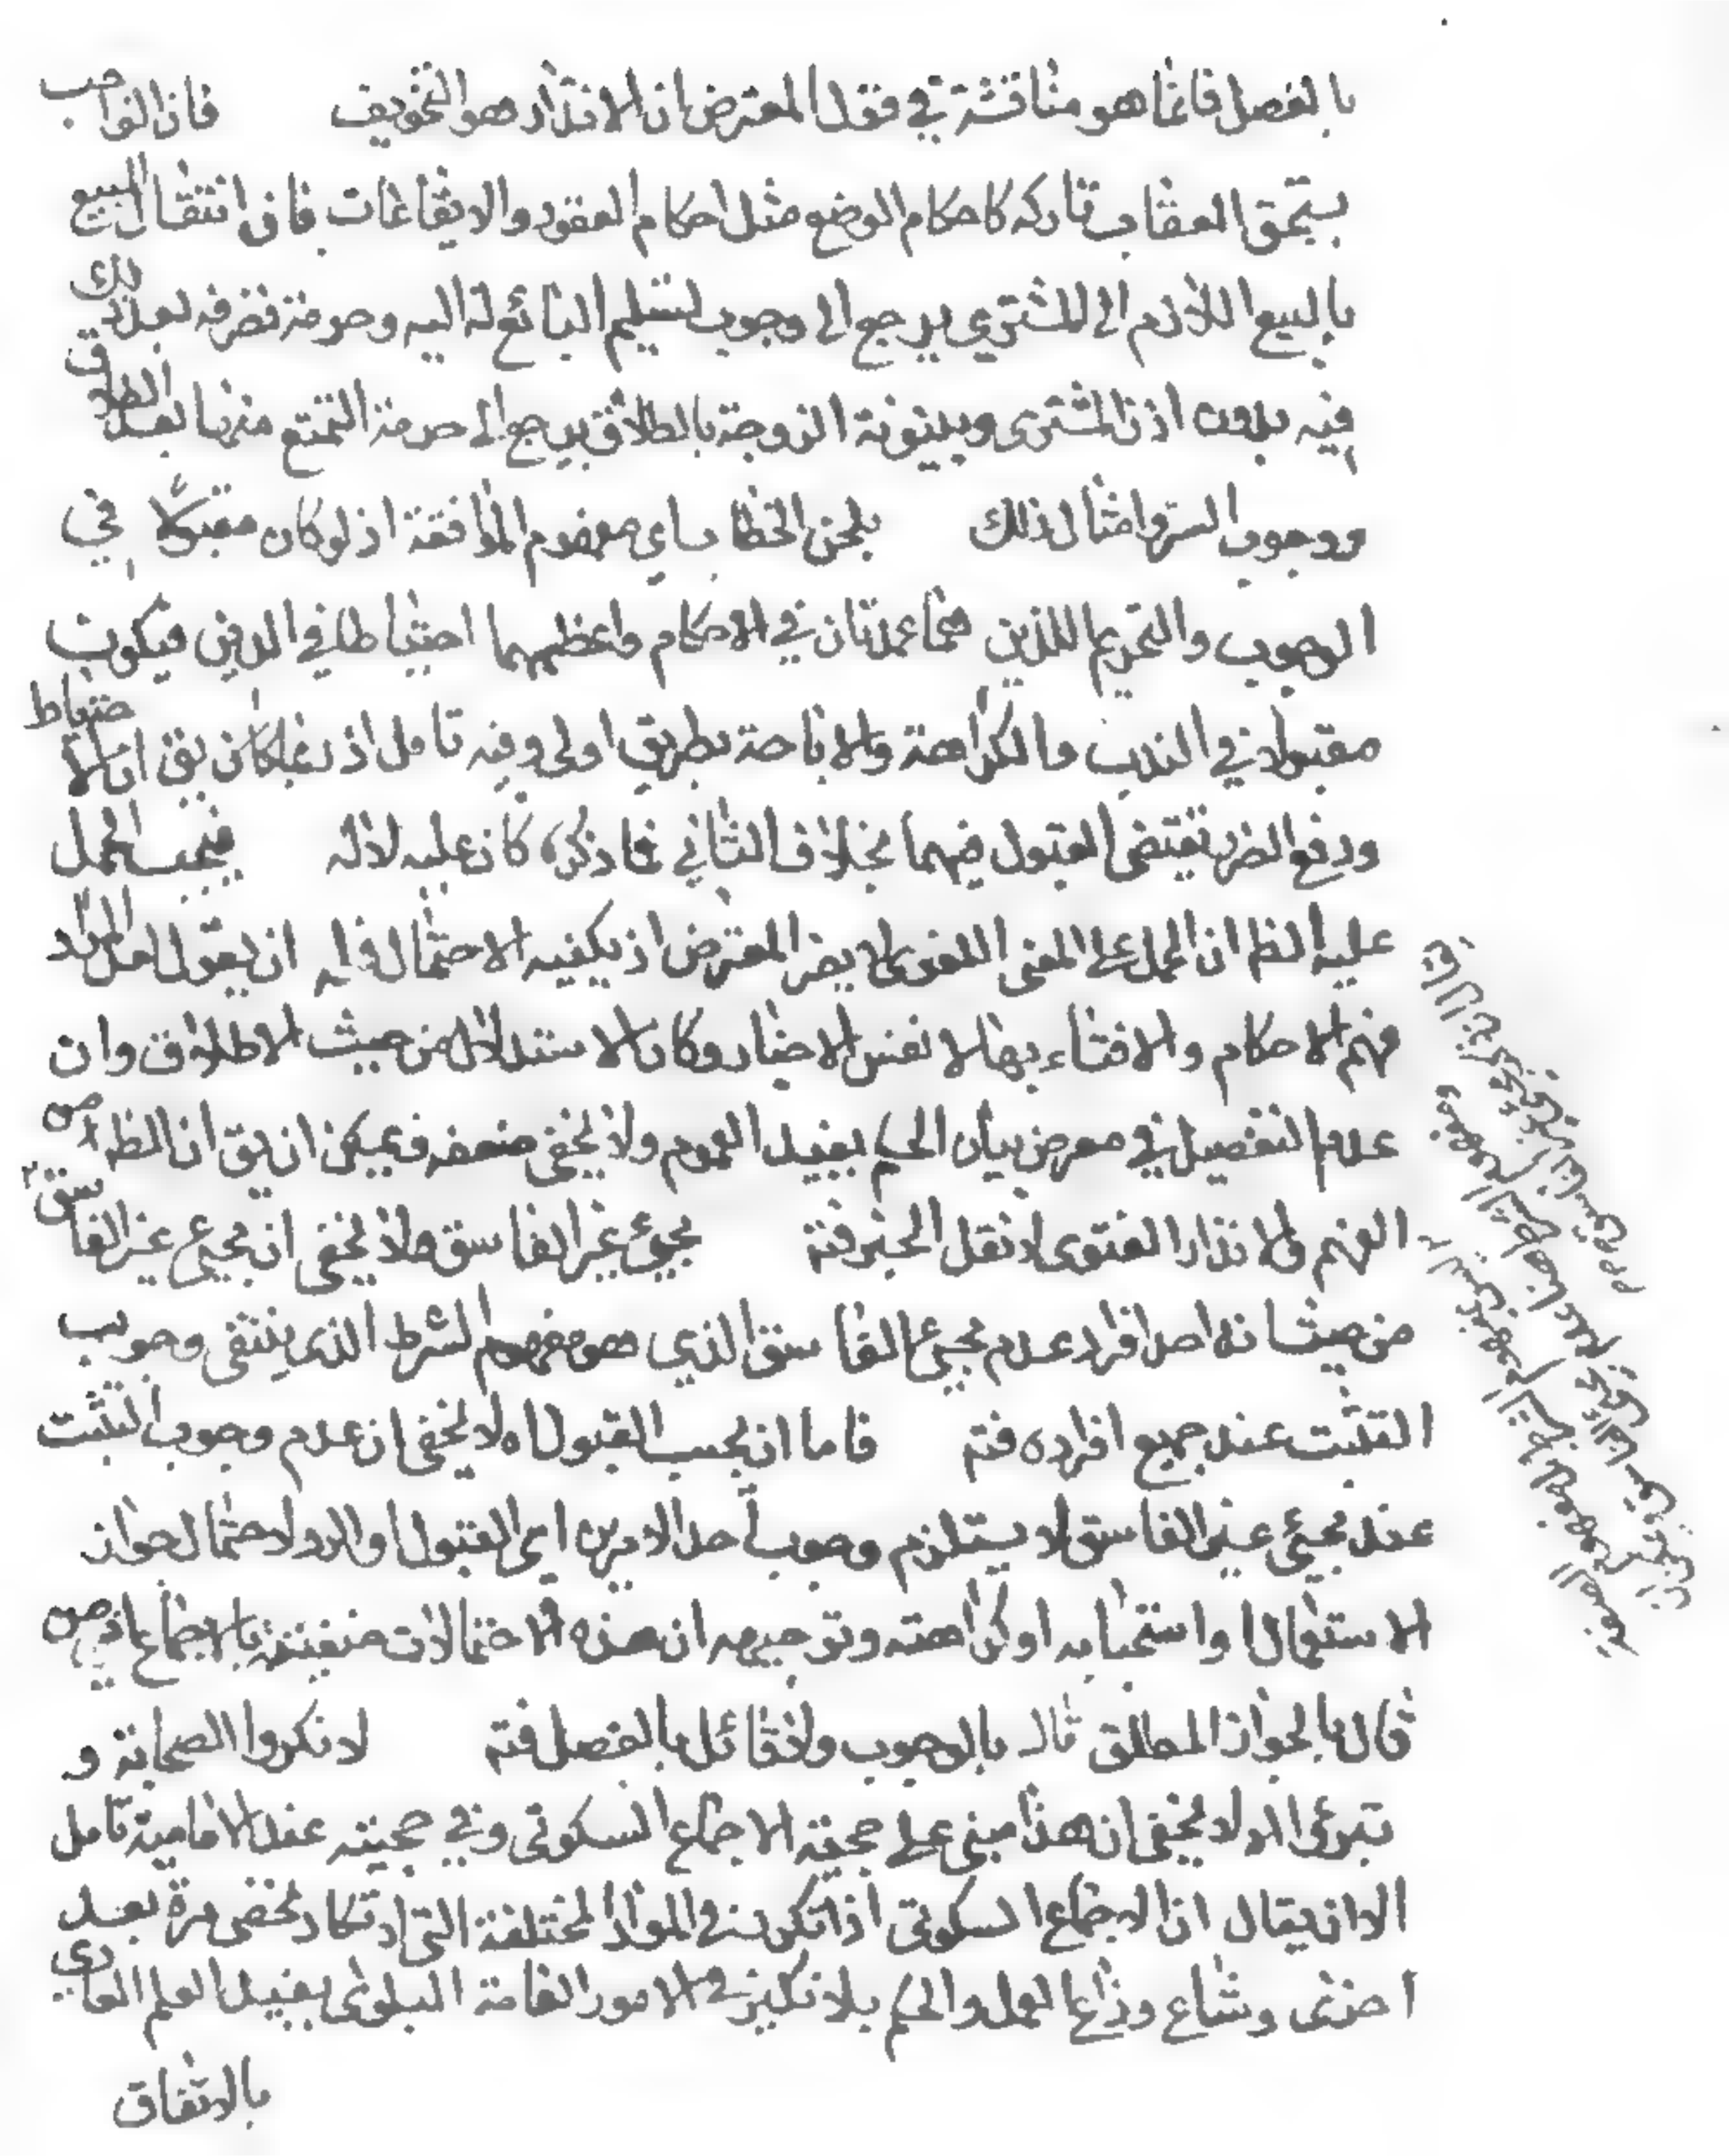 بالفصل فانما هو مناقشة في فقد المعترض ان الانذار هو التخويف فان الواجب
يستحق العقاب تاركه كاحكام الوضع مثل احكام العقود والايقاعات فان انتقال المبيع
بالبيع اللازم الى المشتري يرجع الى وجوب تسليم البائع له اليه وحرمة تصرفه بعد ذلك
فيه بدون اذن المشترى وبينونة الزوجة بالطلاق يرجع الى حرمة التمتع منها بعد الطلاق
ووجوب الستر وامثال ذلك بلحن الخطاب اي مفهوم الموافقة اذ لو كان مقبولا في
الوجوب والتحريم اللذين هما عمدتان في الاحكام واعظمهما احتياطا في الدين فيكون
مقبولا في الندب والكراهة والاباحة بطريق اولى وفيه تامل اذ ربما كان يق ان الاحتياط
ودفع الضرر يقتضى القبول فيهما بخلاف الثاني فما ذكره كان عليه لا له فيجب الحمل
عليه الظ ان الحمل على المعنى اللغوى لا يضر المعترض اذ يكفيه الاحتمال فله ان يقول لعل المراد
فهم الاحكام والافتاء بها لا نفس الاخبار وكان الاستدلال من حيث الاطلاق وان
عدم التفصيل في معرض بيان الحكم يفيد العموم ولا يخفى ضعفه ويمكن ان يق ان الظه من
الفهم والانذار الفتوى لا نقل الخبر فتم مجيئ غير الفاسق ولا يخفى ان مجيئ غير الفاسق
من حيث انه احد افراد عدم مجيئ الفاسق الذي هو مفهوم الشرط الذى ينتفى وجوب
التثبت عند جميع افراده فتم فاما ان يجب القبول اه لا يخفى ان عدم وجوب التثبت
عند مجيئ غير الفاسق لا يستلزم وجوب احد الامرين اى القبول والرد لاحتمال جواز
الاستعمال واستحبابه او كراهته وتوجيهه ان هذه الاحتمالات منفية بالاجماع اذ من
قال بالجواز المطلق قال بالوجوب ولا قائل بالفصل فتم لانكروا الصحابة و
تبرئ اه ولا يخفى ان هذا مبنى على حجية الاجماع السكوتى وفي حجيته عند الامامية تامل
الا ان يقال ان الاجماع السكوتى اذا تكرر في المواد المختلفة التى لا تكاد تحصى مرة بعد
اخرى وشاع وذاع العمل والحكم بلا نكير في الامور العامة البلوى يفيد العلم العادي
بالاتفاق